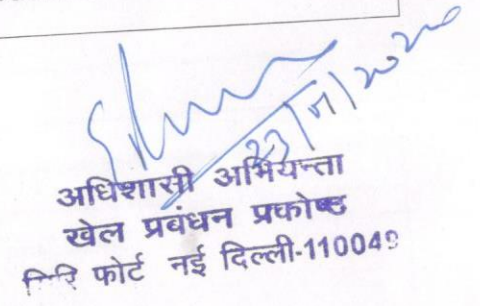 23/7/2020
अधिशासी अभियन्ता
खेल प्रबंधन प्रकोष्ठ
सिरि फोर्ट नई दिल्ली-110049